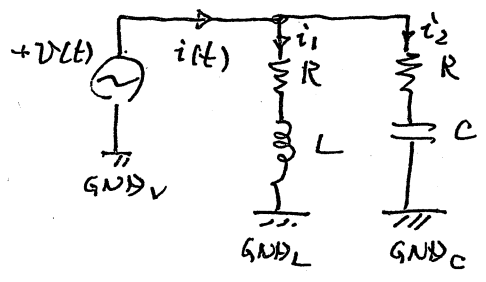 +v(t) i(t) i₁ i₂
R R
L C
GND_V
GND_L GND_C